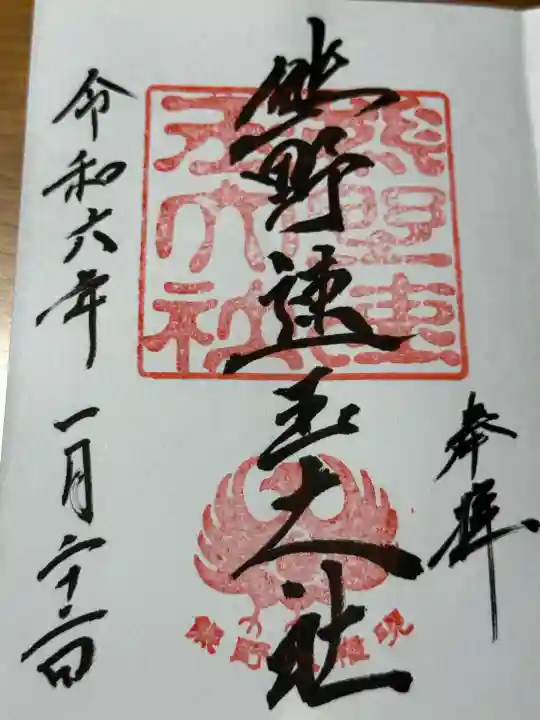 奉拝
熊野速玉大社
令和六年一月二十二日
熊野速
玉大社
熊野権現